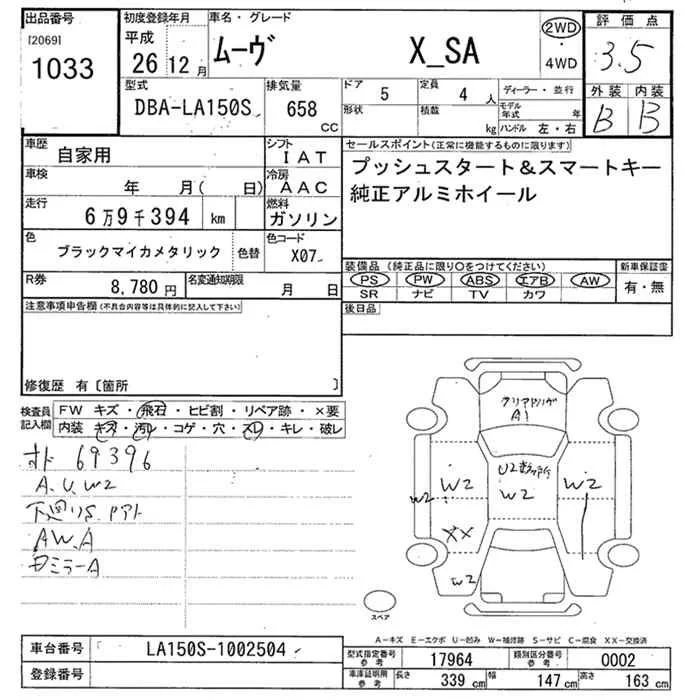 出品番号
[2069]
1033
初度登録年月
平成
26 12 月
車名・グレード
ムーヴ X_SA
2WD
・
4WD
評価点
3.5
外装 内装
B B
型式
DBA-LA150S
排気量
658
CC
ドア 5
定員 4 人
形状
積載 kg
ディーラー・並行
モデル年式 年
ハンドル 左・右
車歴 自家用
車検 年 月( 日)
走行 6万9千394 km
色 ブラックマイカメタリック 色替
R券 8,780 円
名変通知期限 月 日
シフト IAT
冷房 AAC
燃料 ガソリン
色コード X07
セールスポイント(正常に機能するものに限ります)
プッシュスタート&スマートキー
純正アルミホイール
装備品(純正品に限り○をつけてください)
PS PW ABS エアB AW
SR ナビ TV カワ
新車保証書
有・無
後日品
注意事項申告欄(不具合内容等は具体的に記入して下さい)
修復歴 有〔箇所 〕
検査員
記入欄
FW キズ・飛石・ヒビ割・リペア跡・×要
内装・キズ・汚レ・コゲ・穴・スレ・キレ・破レ
69396
A.U.W2
AW.A
ミラーA
A1
U2
W2
W2
W2
W2
XX
W2
スペア
A-キズ E-エクボ U-凹み W-補修跡 S-サビ C-腐食 XX-交換済
車台番号 LA150S-1002504
登録番号
型式指定番号
参考
17964
類別区分番号
参考
0002
車庫証明用
参考
長さ 339 cm 幅 147 cm 高さ 163 cm